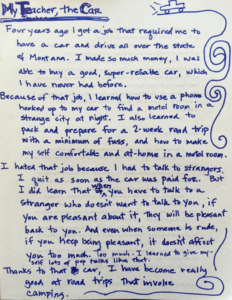 My Teacher, the Car
Four years ago I got a job that required me to
have a car and drive all over the state
of Montana. I made so much money, I was
able to buy a good, super-reliable car, which
I have never had before.
Because of that job, I learned how to use a phone
hooked up to my car to find a motel room in a
strange city at night. I also learned to
pack and prepare for a 2-week road trip
with a minimum of fuss, and how to make
my self comfortable and at-home in a motel room.
I hated that job because I had to talk to strangers.
I quit as soon as the car was paid for. But
I did learn that when you have to talk to a
stranger who doesn't want to talk to you, if
you are pleasant about it, they will be pleasant
back to you. And even when someone is rude,
if you keep being pleasant, it doesn't affect
you too much. Too much. I learned to give my-
self lots of pep talks like that.
Thanks to that car, I have become really
good at road trips that involve
camping.